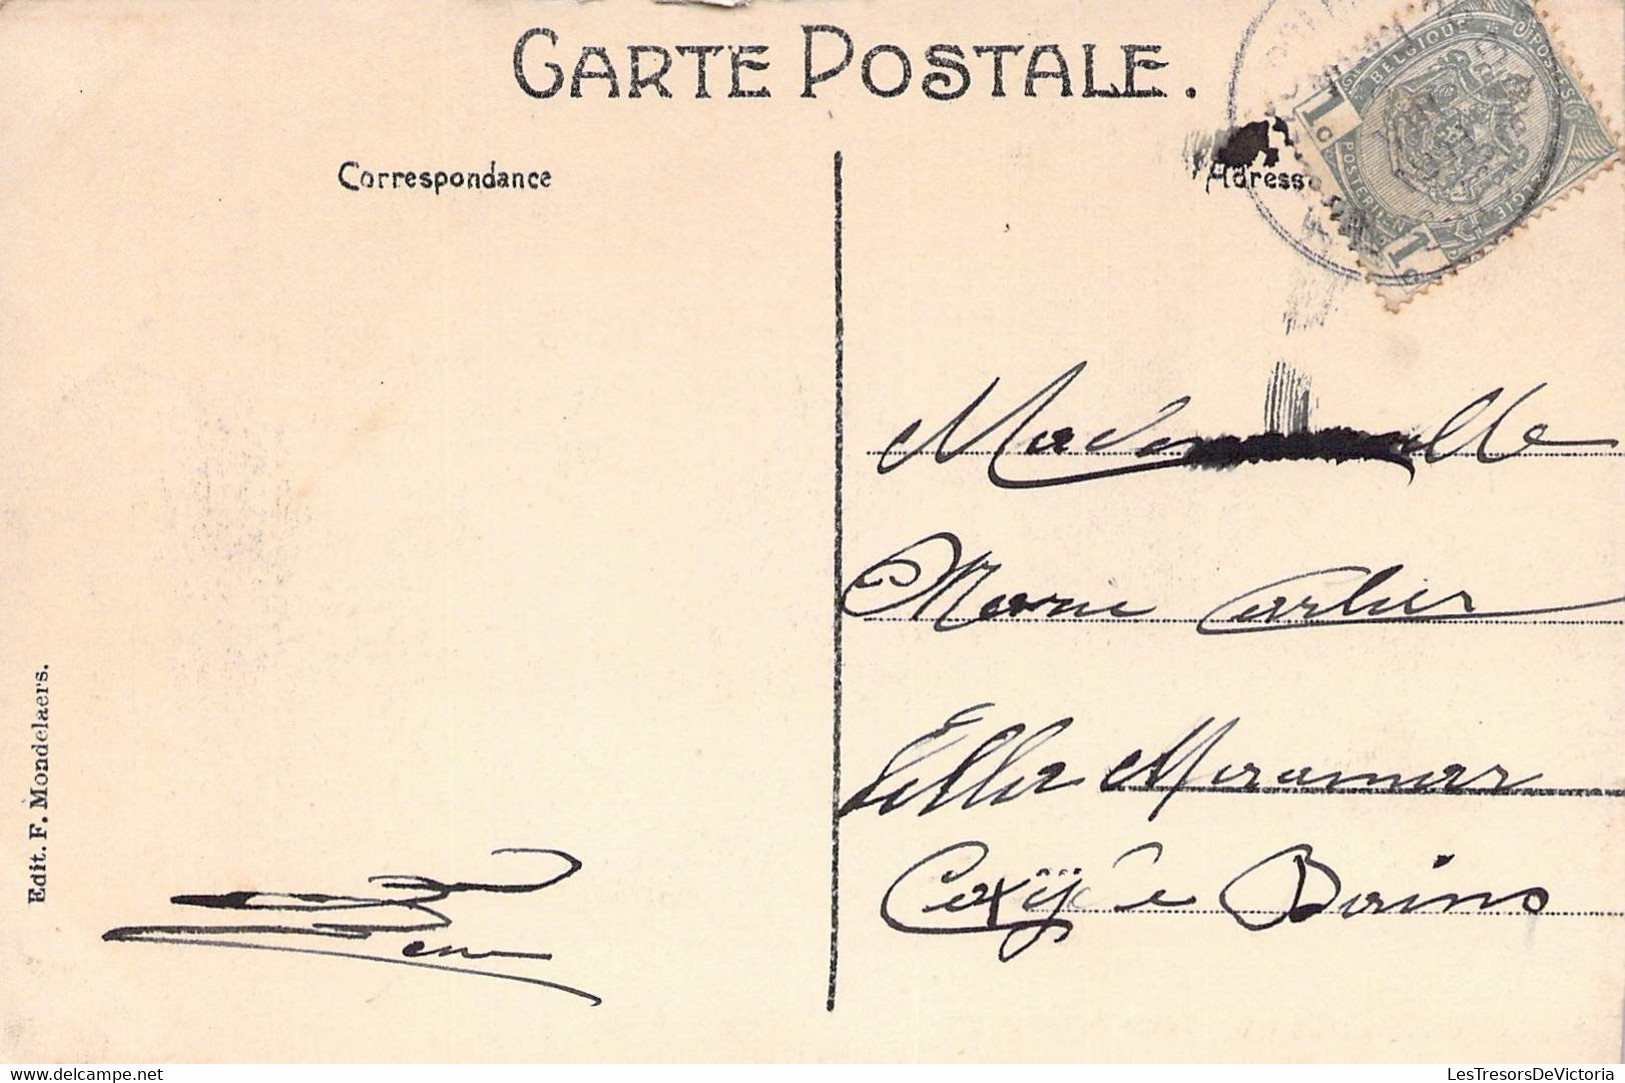 CARTE POSTALE.
Correspondance
Adresse
BELGIQUE
POSTES
1 c
POSTERIJEN
1 c
BELGIË
Mademoiselle
Marie Carlier
Villa Miramar
Coxyde Bains
Edit. F. Mondelaers.
LesTresorsDeVictoria
https://www.delcampe.net/fr/collections/store/LesTresorsDeVictoria